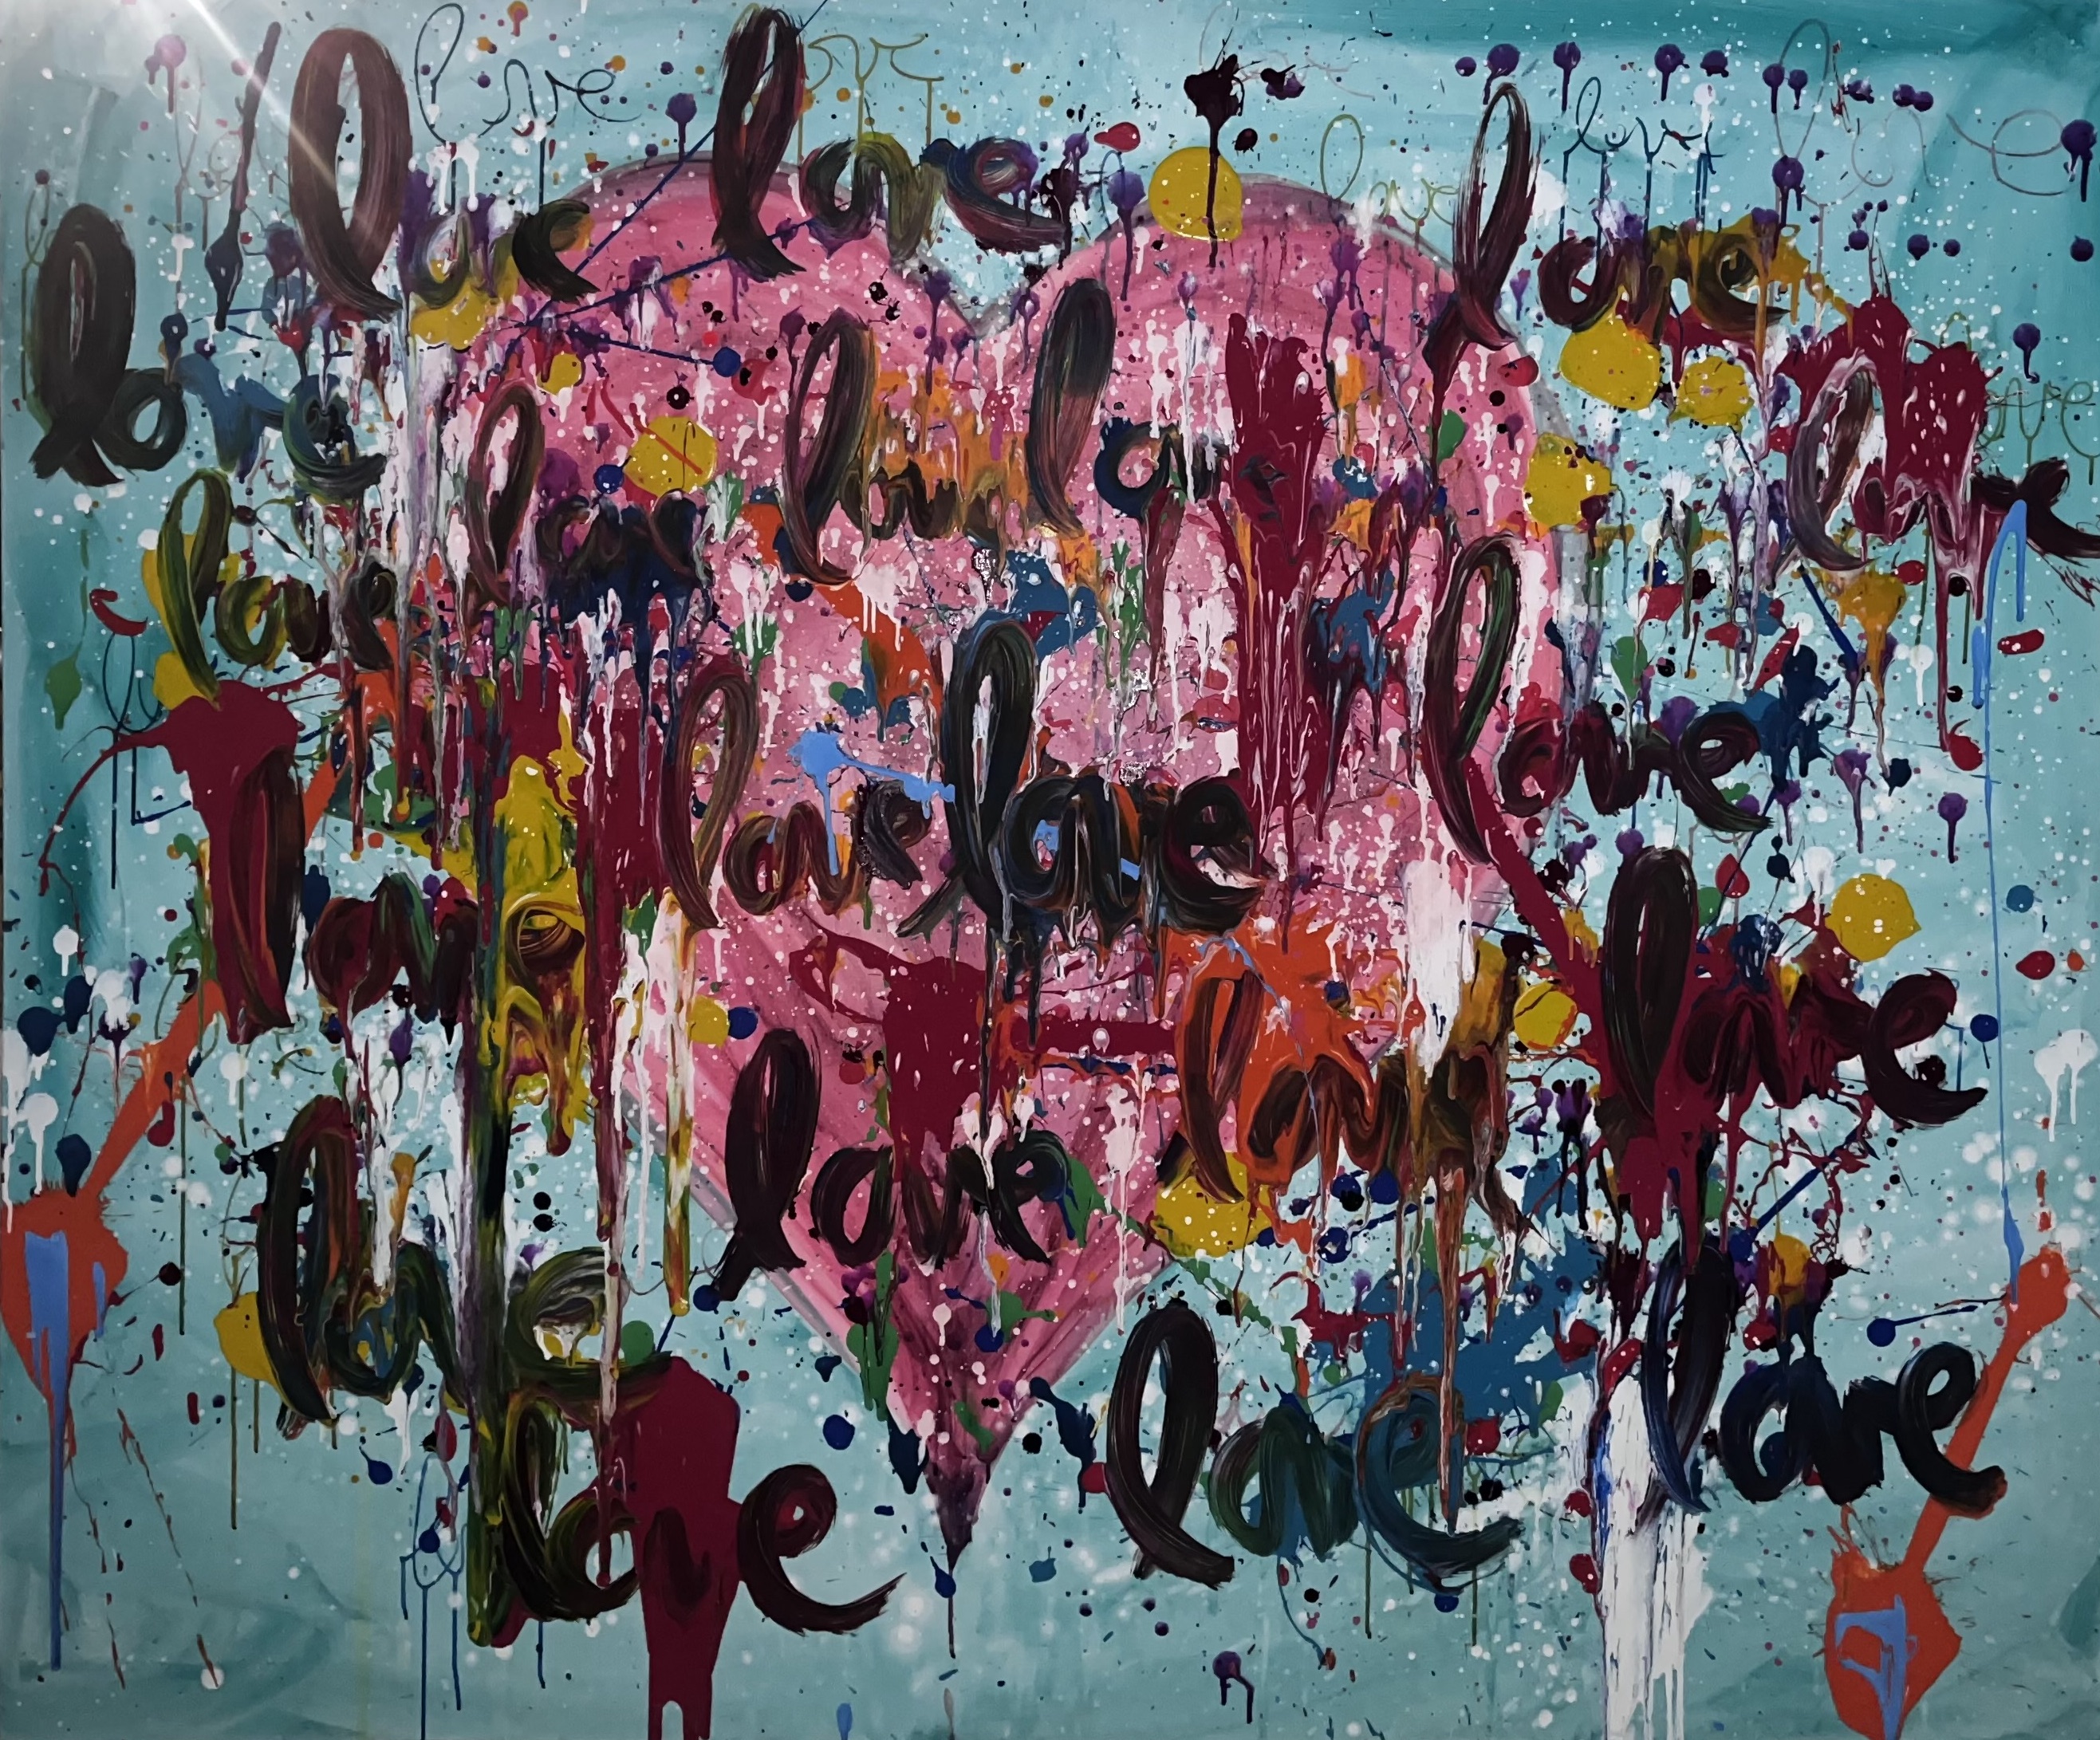 love love love love love
love love love
love love love love love
love
love love love
love love love
love
love love love
love